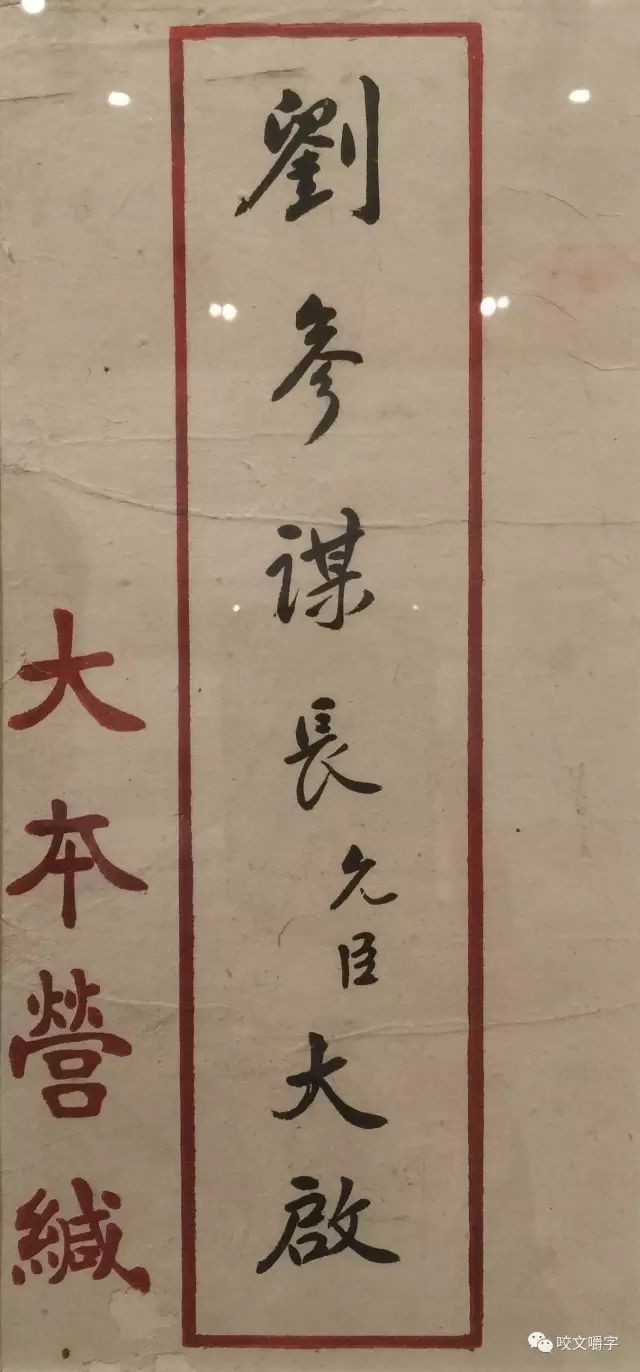 劉參謀長允臣大啟
大本營緘
咬文嚼字